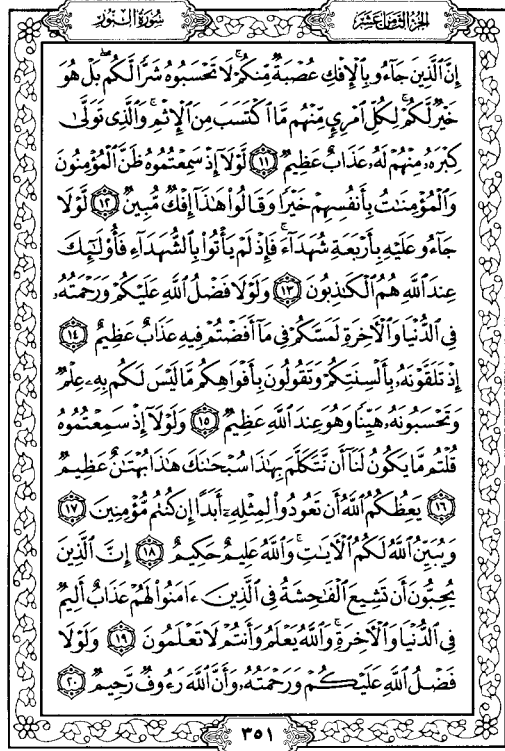 الجزء الثامن عشر
سورة النور
إِنَّ ٱلَّذِينَ جَآءُو بِٱلْإِفْكِ عُصْبَةٌ مِّنكُمْ ۚ لَا تَحْسَبُوهُ شَرًّا لَّكُم ۖ بَلْ هُوَ
خَيْرٌ لَّكُمْ ۚ لِكُلِّ ٱمْرِئٍ مِّنْهُم مَّا ٱكْتَسَبَ مِنَ ٱلْإِثْمِ ۚ وَٱلَّذِى تَوَلَّىٰ
كِبْرَهُۥ مِنْهُمْ لَهُۥ عَذَابٌ عَظِيمٌ ١١ لَّوْلَآ إِذْ سَمِعْتُمُوهُ ظَنَّ ٱلْمُؤْمِنُونَ
وَٱلْمُؤْمِنَٰتُ بِأَنفُسِهِمْ خَيْرًا وَقَالُوا۟ هَٰذَآ إِفْكٌ مُّبِينٌ ١٢ لَّوْلَا
جَآءُو عَلَيْهِ بِأَرْبَعَةِ شُهَدَآءَ ۚ فَإِذْ لَمْ يَأْتُوا۟ بِٱلشُّهَدَآءِ فَأُو۟لَٰٓئِكَ
عِندَ ٱللَّهِ هُمُ ٱلْكَٰذِبُونَ ١٣ وَلَوْلَا فَضْلُ ٱللَّهِ عَلَيْكُمْ وَرَحْمَتُهُۥ
فِى ٱلدُّنْيَا وَٱلْءَاخِرَةِ لَمَسَّكُمْ فِى مَآ أَفَضْتُمْ فِيهِ عَذَابٌ عَظِيمٌ ١٤
إِذْ تَلَقَّوْنَهُۥ بِأَلْسِنَتِكُمْ وَتَقُولُونَ بِأَفْوَاهِكُم مَّا لَيْسَ لَكُم بِهِۦ عِلْمٌ
وَتَحْسَبُونَهُۥ هَيِّنًا وَهُوَ عِندَ ٱللَّهِ عَظِيمٌ ١٥ وَلَوْلَآ إِذْ سَمِعْتُمُوهُ
قُلْتُم مَّا يَكُونُ لَنَآ أَن نَّتَكَلَّمَ بِهَٰذَا سُبْحَٰنَكَ هَٰذَا بُهْتَٰنٌ عَظِيمٌ
١٦ يَعِظُكُمُ ٱللَّهُ أَن تَعُودُوا۟ لِمِثْلِهِۦٓ أَبَدًا إِن كُنتُم مُّؤْمِنِينَ ١٧
وَيُبَيِّنُ ٱللَّهُ لَكُمُ ٱلْءَايَٰتِ ۚ وَٱللَّهُ عَلِيمٌ حَكِيمٌ ١٨ إِنَّ ٱلَّذِينَ
يُحِبُّونَ أَن تَشِيعَ ٱلْفَٰحِشَةُ فِى ٱلَّذِينَ ءَامَنُوا۟ لَهُمْ عَذَابٌ أَلِيمٌ
فِى ٱلدُّنْيَا وَٱلْءَاخِرَةِ ۚ وَٱللَّهُ يَعْلَمُ وَأَنتُمْ لَا تَعْلَمُونَ ١٩ وَلَوْلَا
فَضْلُ ٱللَّهِ عَلَيْكُمْ وَرَحْمَتُهُۥ وَأَنَّ ٱللَّهَ رَءُوفٌ رَّحِيمٌ ٢٠
٣٥١